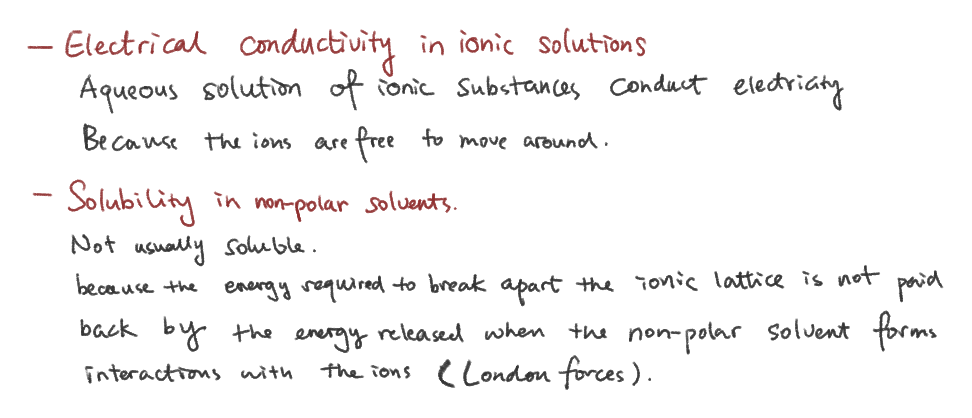 — Electrical conductivity in ionic solutions
Aqueous solution of ionic substances conduct electricity
Because the ions are free to move around.
— Solubility in non-polar solvents.
Not usually soluble.
because the energy required to break apart the ionic lattice is not paid
back by the energy released when the non-polar solvent forms
interactions with the ions (London forces).